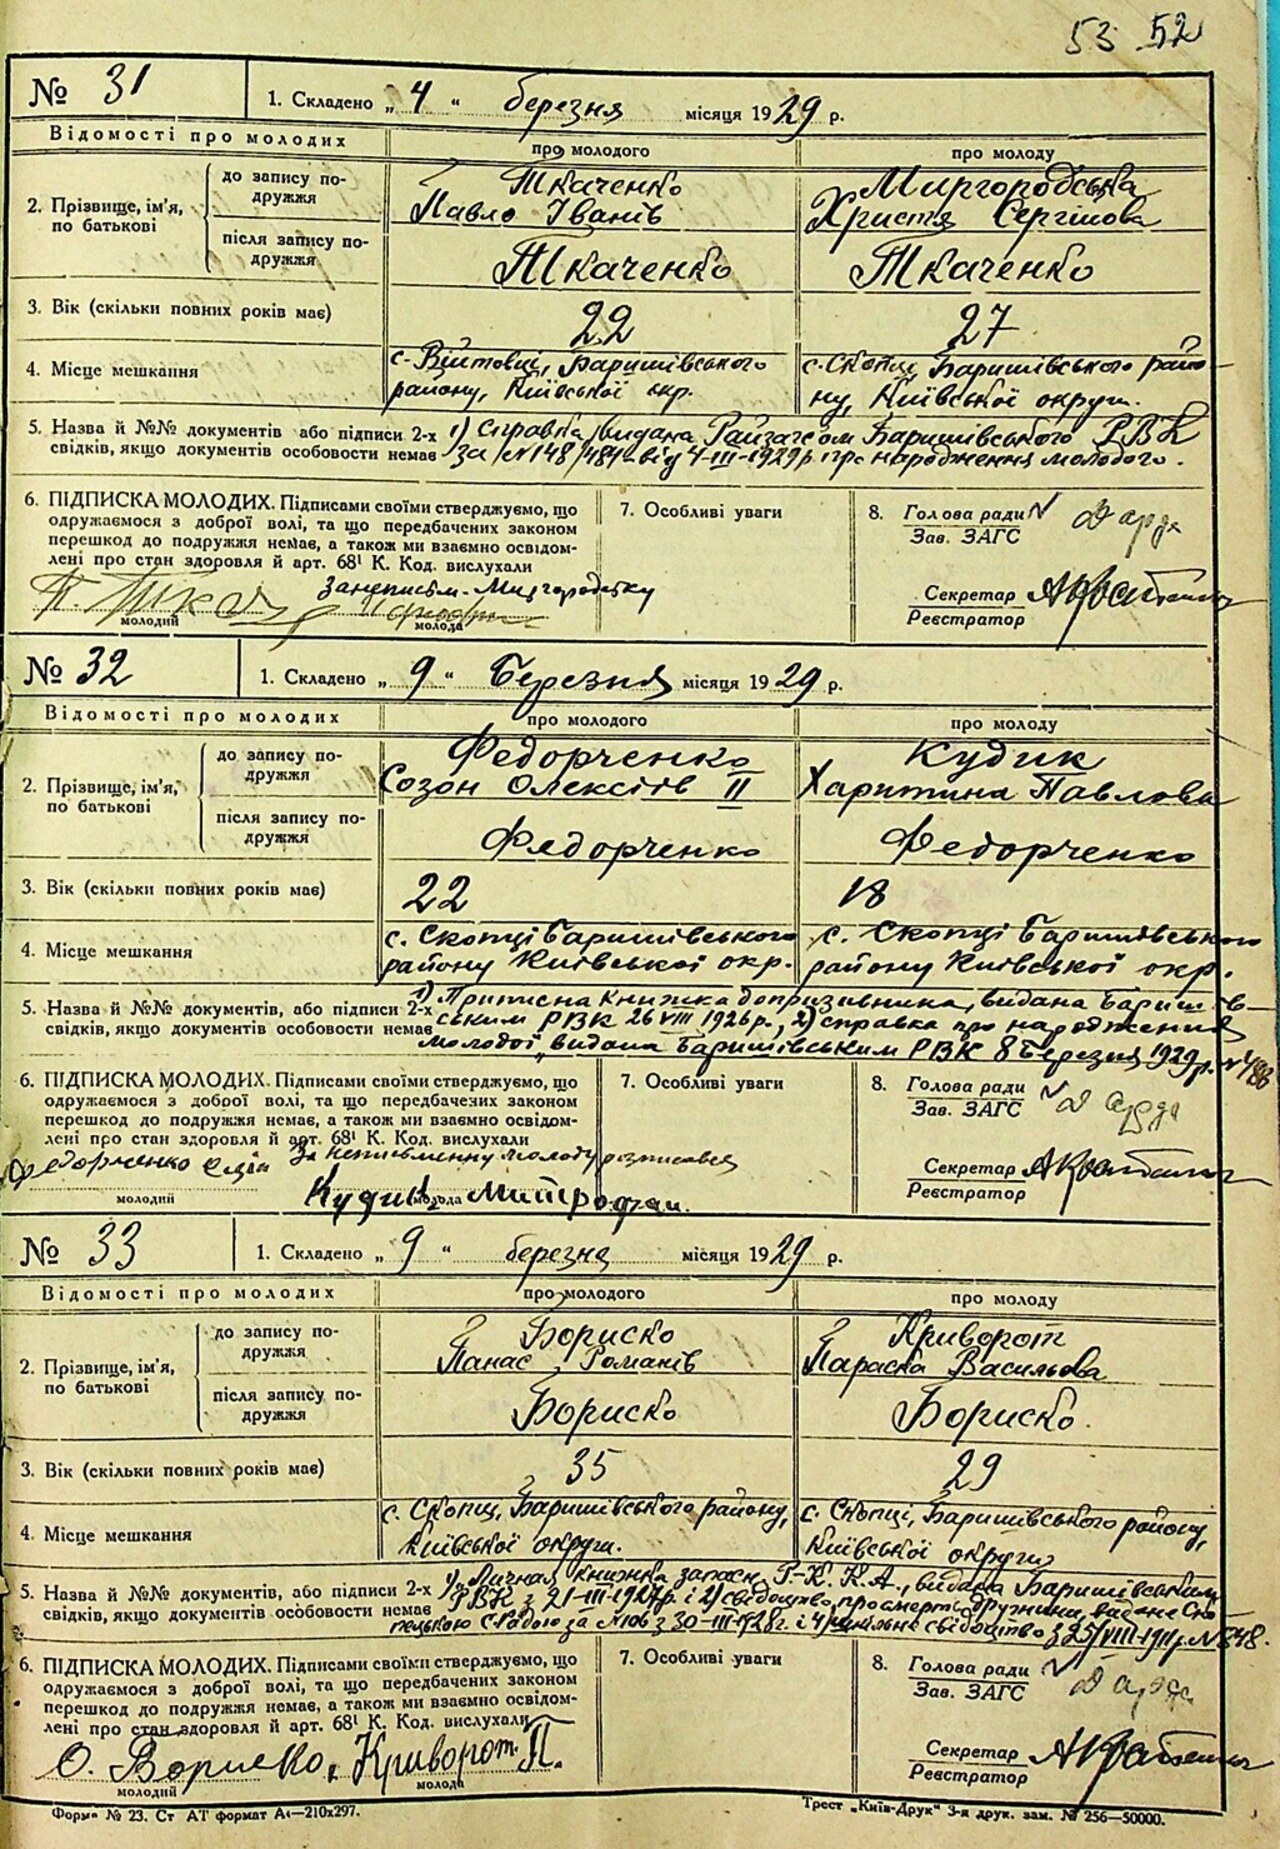 53 52
№ 31
1. Складено „ 4 “ березня місяця 1929 р.
Відомості про молодих
про молодого
про молоду
2. Прізвище, ім'я, по батькові
до запису по-
дружжя
Ткаченко
Павло Іванів
Миргородська
Христя Сергіїова
після запису по-
дружжя
Ткаченко
Ткаченко
3. Вік (скільки повних років має)
22
27
4. Місце мешкання
с. Війтовці, Баришівського
району, Київської окр.
с. Скопці, Баришівського райо-
ну, Київської округи.
5. Назва й №№ документів або підписи 2-х
свідків, якщо документів особовости немає
1) Справка, видана Райзагсом Баришівського РВК
за №148/484 від 4-III-1929р. про народження молодого.
6. ПІДПИСКА МОЛОДИХ. Підписами своїми стверджуємо, що
одружаємося з доброї волі, та що передбачених законом
перешкод до подружжя немає, а також ми взаємно освідом-
лені про стан здоровля й арт. 68¹ К. Код. вислухали
За неписьм. Миргородську
молодий
молода
7. Особливі уваги
8. Голова ради
Зав. ЗАГС
Секретар
Реєстратор
№ 32
1. Складено „ 9 “ Березня місяця 1929 р.
Відомості про молодих
про молодого
про молоду
2. Прізвище, ім'я,
по батькові
до запису по-
дружжя
Федорченко
Созон Олексіїв II
Кудик
Харитина Павлова
після запису по-
дружжя
Федорченко
Федорченко
3. Вік (скільки повних років має)
22
18
4. Місце мешкання
с. Скопці Баришівського
району Київської окр.
с. Скопці Баришівського
району Київської окр.
5. Назва й №№ документів, або підписи 2-х
свідків, якщо документів особовости немає
1) Приписна книжка допризивника, видана Баришів-
ським РВК 26 VIII 1926 р., 2) справка про народження
молодої, видана Баришівським РВК 8 Березня 1929 р. №
6. ПІДПИСКА МОЛОДИХ. Підписами своїми стверджуємо, що
одружаємося з доброї волі, та що передбачених законом
перешкод до подружжя немає, а також ми взаємно освідом-
лені про стан здоровля й арт. 68¹ К. Код. вислухали
Федорченко
За неписьменну молоду розписався
Кудик Митрофан.
молодий
молода
7. Особливі уваги
8. Голова ради
Зав. ЗАГС
Секретар
Реєстратор
№ 33
1. Складено „ 9 “ березня місяця 1929 р.
Відомості про молодих
про молодого
про молоду
2. Прізвище, ім'я,
по батькові
до запису по-
дружжя
Бориско
Панас Романів
Криворот
Параска Васильова
після запису по-
дружжя
Бориско
Бориско.
3. Вік (скільки повних років має)
35
29
4. Місце мешкання
с. Скопці, Баришівського району,
Київської округи.
с. Скопці, Баришівського району,
Київської округи
5. Назва й №№ документів, або підписи 2-х
свідків, якщо документів особовости немає
1) Личная книжка запасн. Р.-К. К. А., видана Баришівським
РВК з 21-III-1927 р. і 2) свідоцтво про смерть дружини, видане Ско-
пецькою с/радою за №106 з 30-III-1928 г. і свідоцтво з 25/VIII-1911 р. №
6. ПІДПИСКА МОЛОДИХ. Підписами своїми стверджуємо, що
одружаємося з доброї волі, та що передбачених законом
перешкод до подружжя немає, а також ми взаємно освідом-
лені про стан здоровля й арт. 68¹ К. Код. вислухали
О. Бориско, Криворот. П.
молодий
молода
7. Особливі уваги
8. Голова ради
Зав. ЗАГС
Секретар
Реєстратор
Форма № 23. Ст АТ формат А4—210х297.
Трест „Київ-Друк“ 3-я друк. зам. № 256—50000.